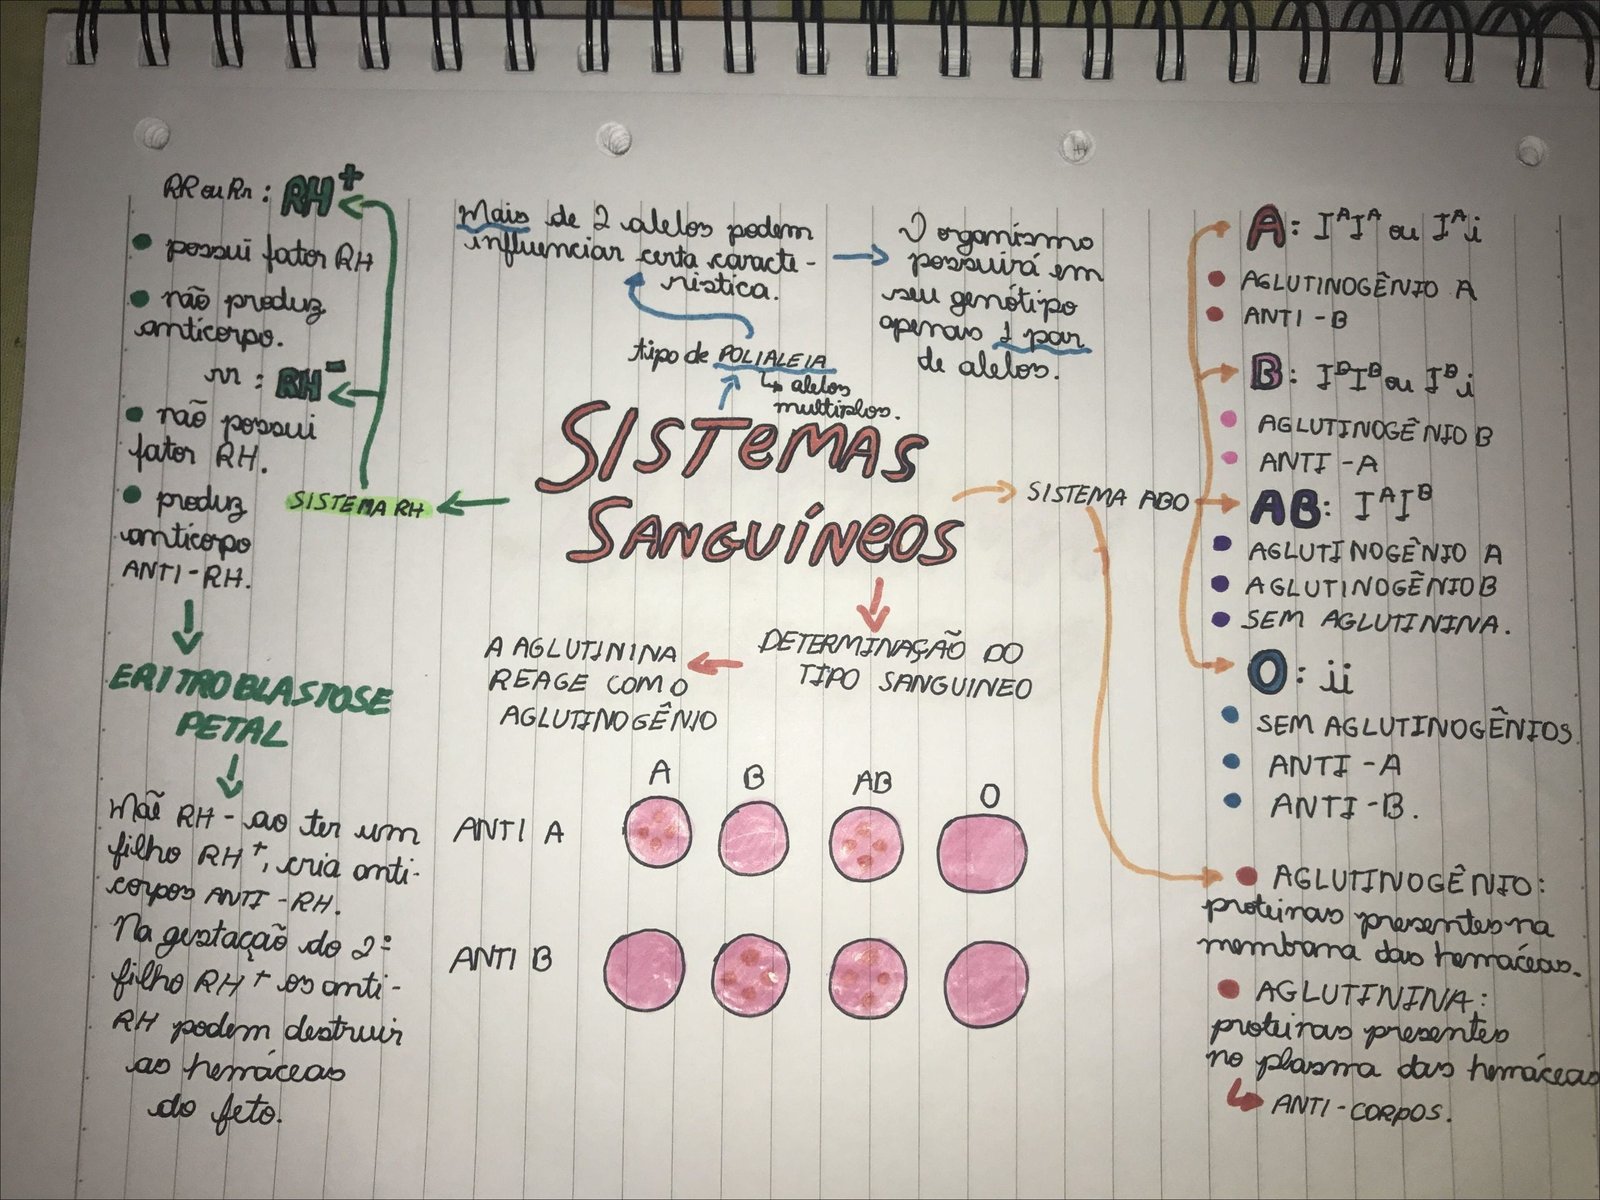 RR ou Rr: RH+
possui fator RH
não produz
anticorpo.
rr: RH-
não possui
fator RH.
produz
anticorpo
ANTI-RH.
SISTEMA RH
ERITROBLASTOSE
PETAL
Mãe RH- ao ter um
filho RH+, cria anti-
corpos ANTI-RH.
Na gestação do 2º
filho RH+ os anti-
RH podem destruir
as hemáceas
do feto.
Mais de 2 alelos podem
influenciar certa caracte-
rística.
O organismo
possuirá em
seu genótipo
apenas 1 par
de alelos.
tipo de POLIALEIA
alelos
multiplos.
SISTEMAS
SANGUÍNEOS
DETERMINAÇÃO DO
TIPO SANGUINEO
A AGLUTININA
REAGE COM O
AGLUTINOGÊNIO
A B AB O
ANTI A
ANTI B
SISTEMA ABO
A: IᴬIᴬ ou Iᴬi
AGLUTINOGÊNIO A
ANTI-B
B: IᴮIᴮ ou Iᴮi
AGLUTINOGÊNIO B
ANTI-A
AB: IᴬIᴮ
AGLUTINOGÊNIO A
AGLUTINOGÊNIO B
SEM AGLUTININA.
O: ii
SEM AGLUTINOGÊNIOS
ANTI-A
ANTI-B.
AGLUTINOGÊNIO:
proteinas presentes na
membrana das hemáceas.
AGLUTININA:
proteinas presentes
no plasma das hemáceas
ANTI-CORPOS.